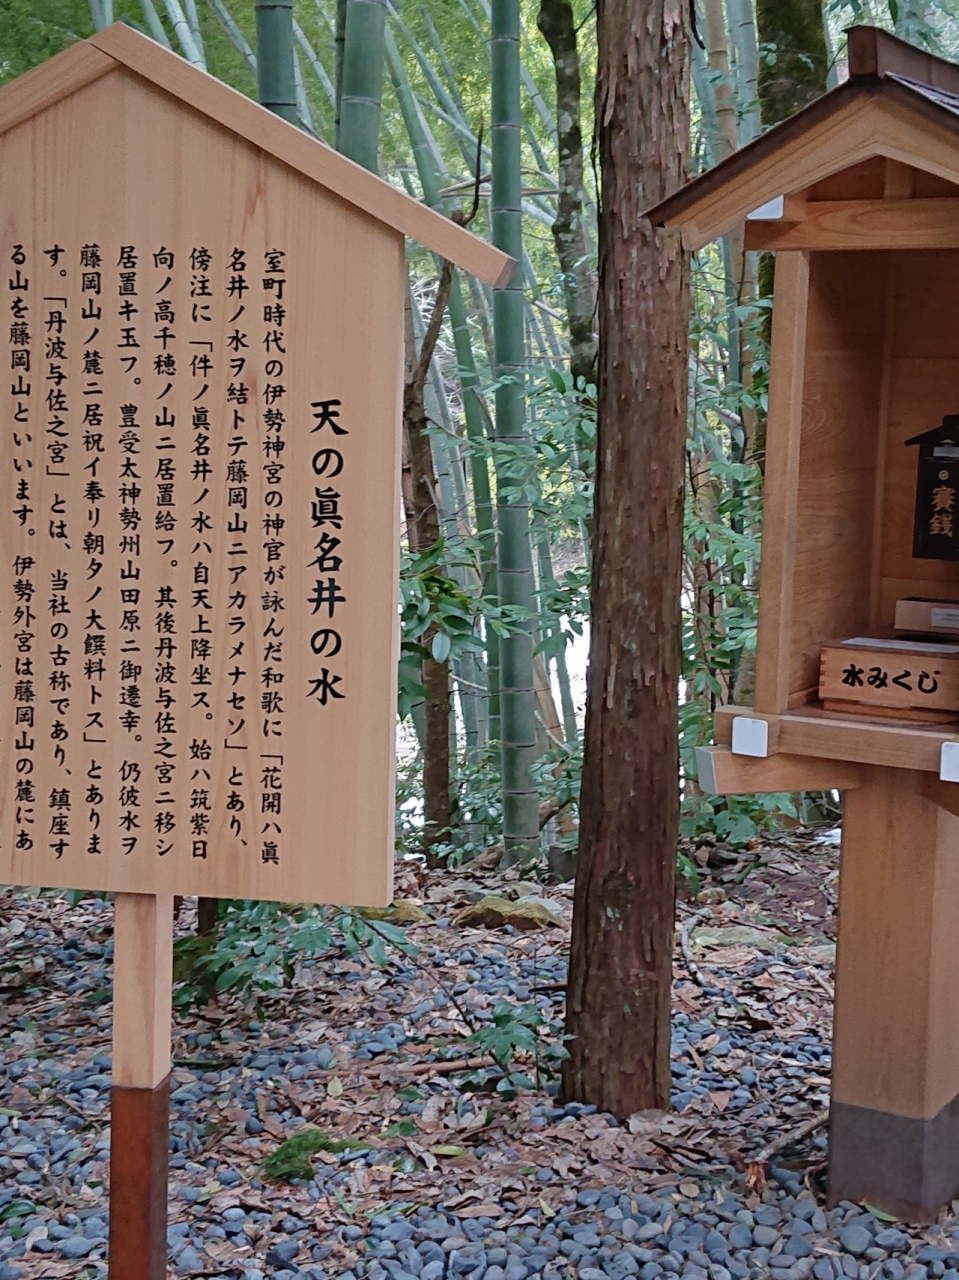 天の眞名井の水
室町時代の伊勢神宮の神官が詠んだ和歌に「花開ハ眞
名井ノ水ヲ結トテ藤岡山ニアカラメナセソ」とあり、
傍注に「件ノ眞名井ノ水ハ自天上降坐ス。始ハ筑紫日
向ノ高千穂ノ山ニ居置給フ。其後丹波与佐之宮ニ移シ
居置キ玉フ。豊受太神勢州山田原ニ御遷幸。仍彼水ヲ
藤岡山ノ麓ニ居祝イ奉リ朝タノ大饌料トス」とありま
す。「丹波与佐之宮」とは、当社の古称であり、鎮座す
る山を藤岡山といいます。伊勢外宮は藤岡山の麓にあ
賽銭
水みくじ